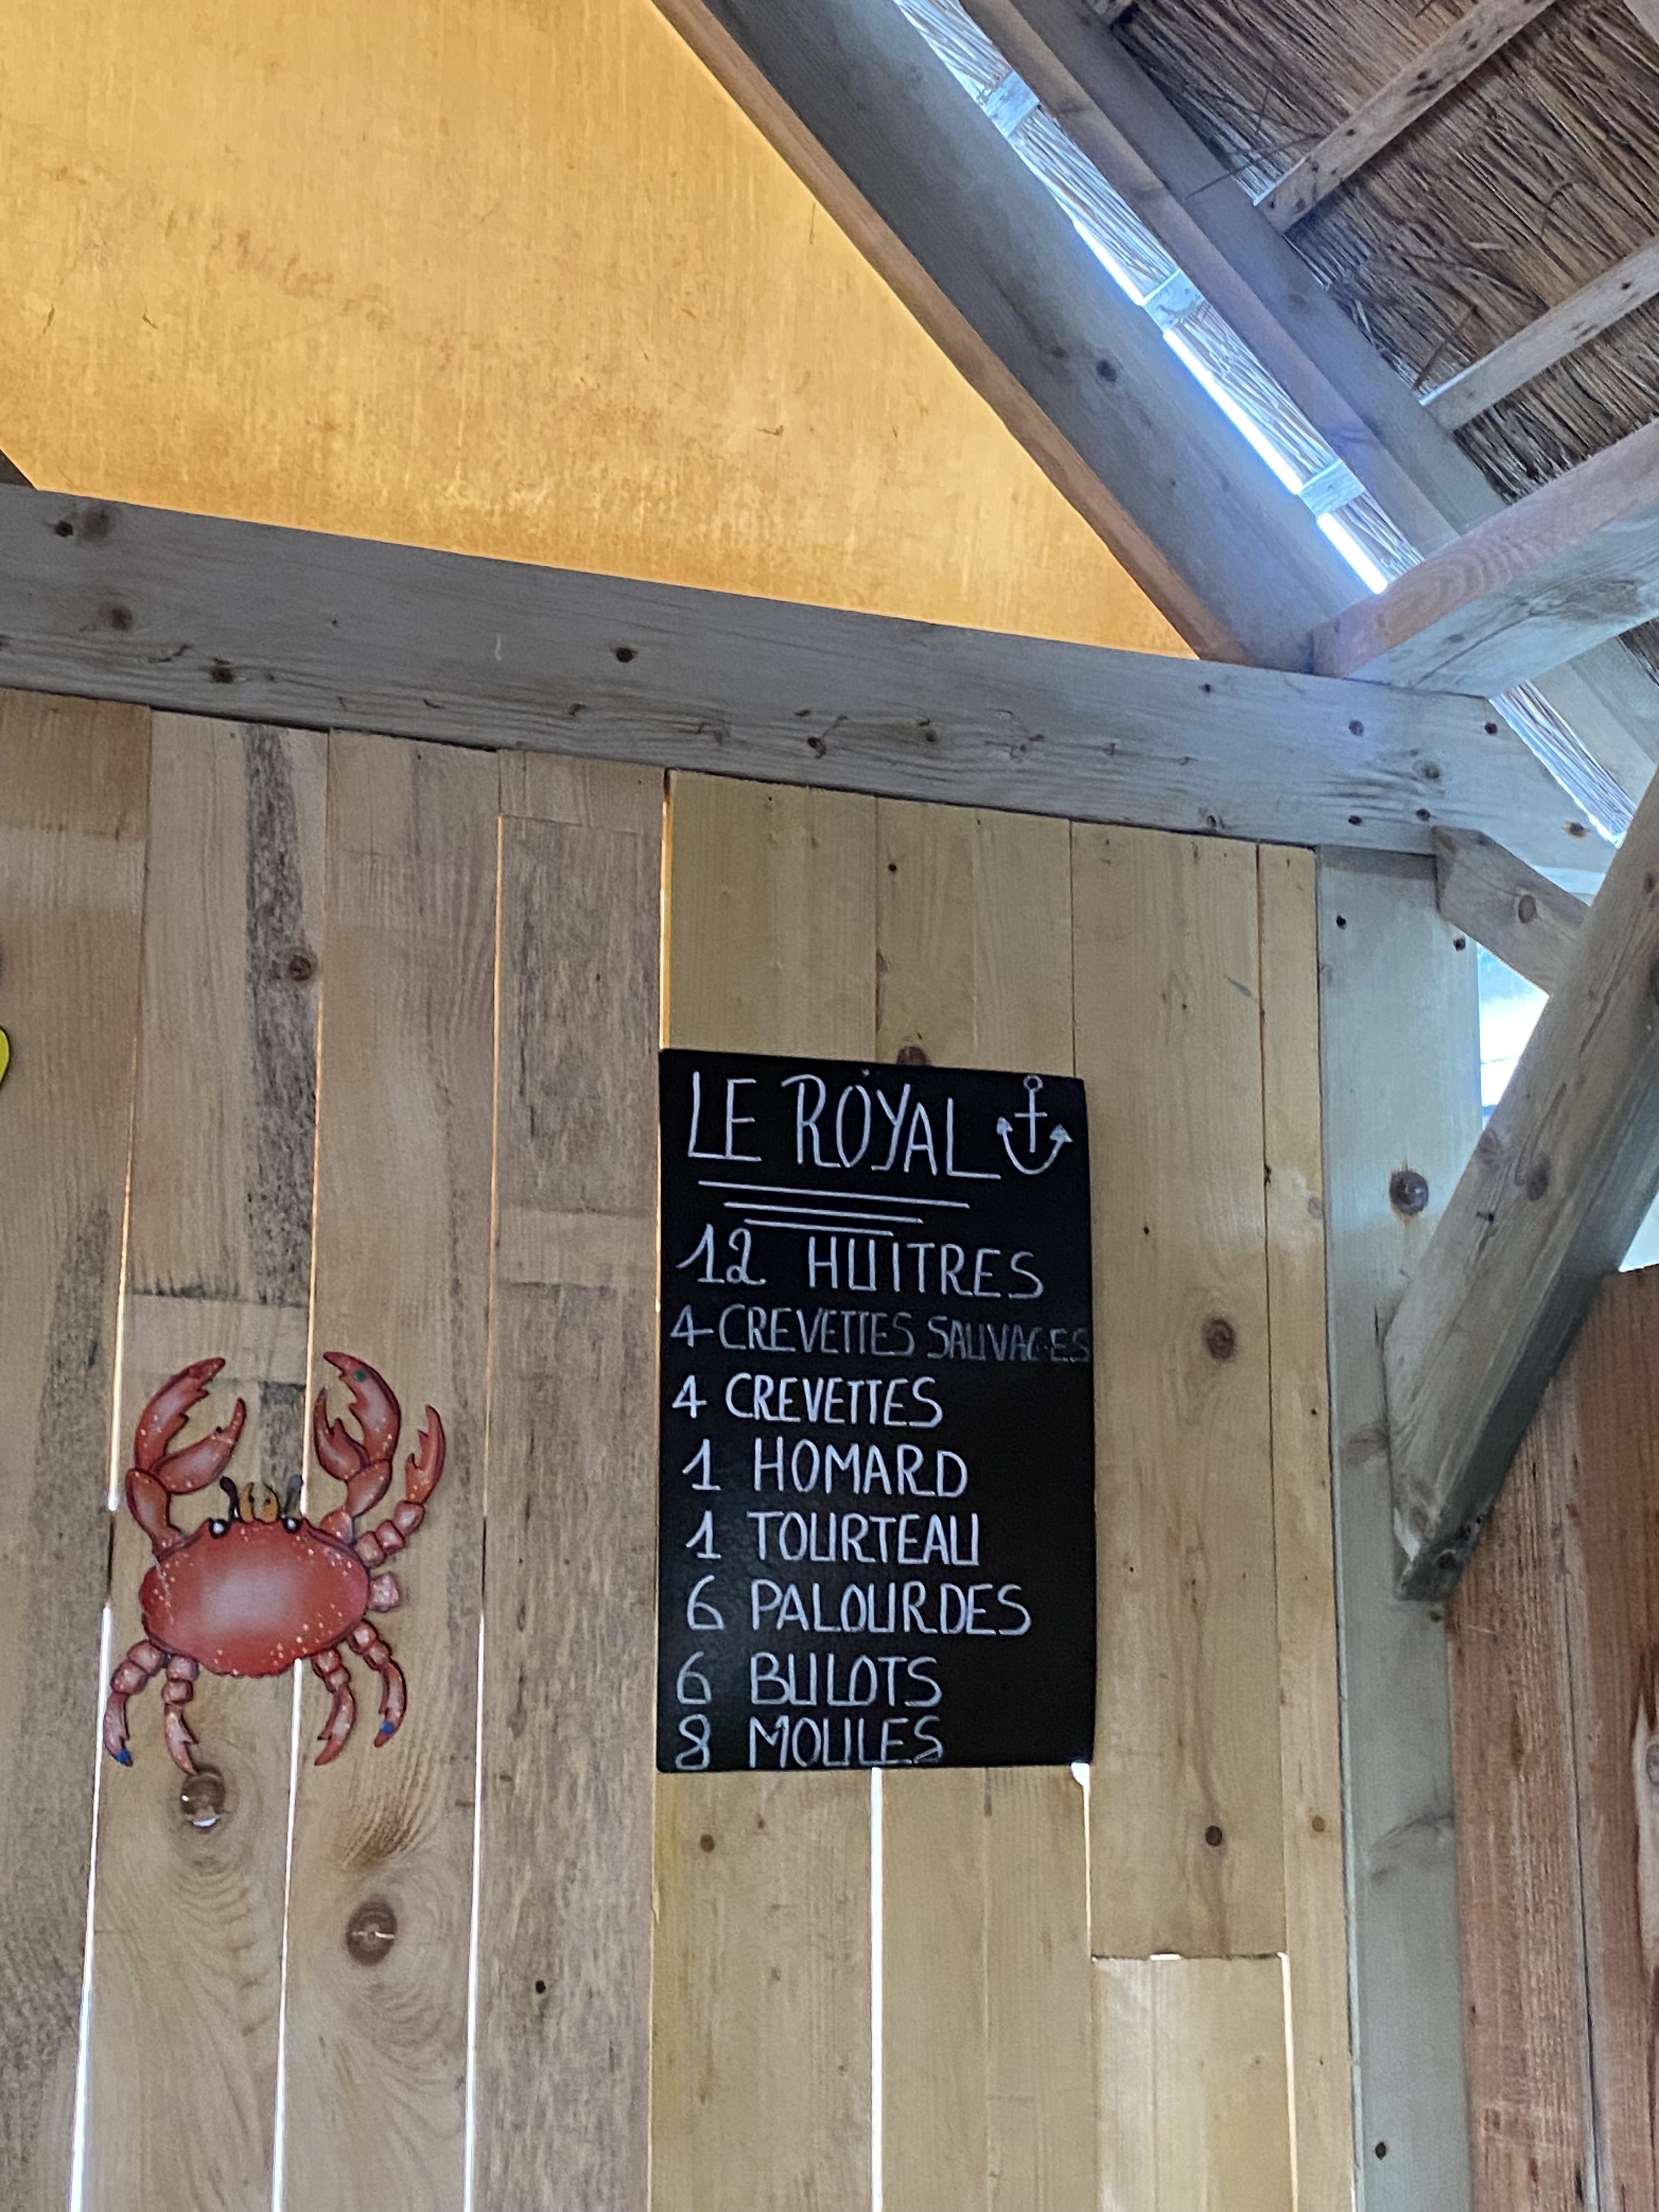 LE ROYAL
12 HUITRES
4 CREVETTES SAUVAGES
4 CREVETTES
1 HOMARD
1 TOURTEAU
6 PALOURDES
6 BULOTS
8 MOULES